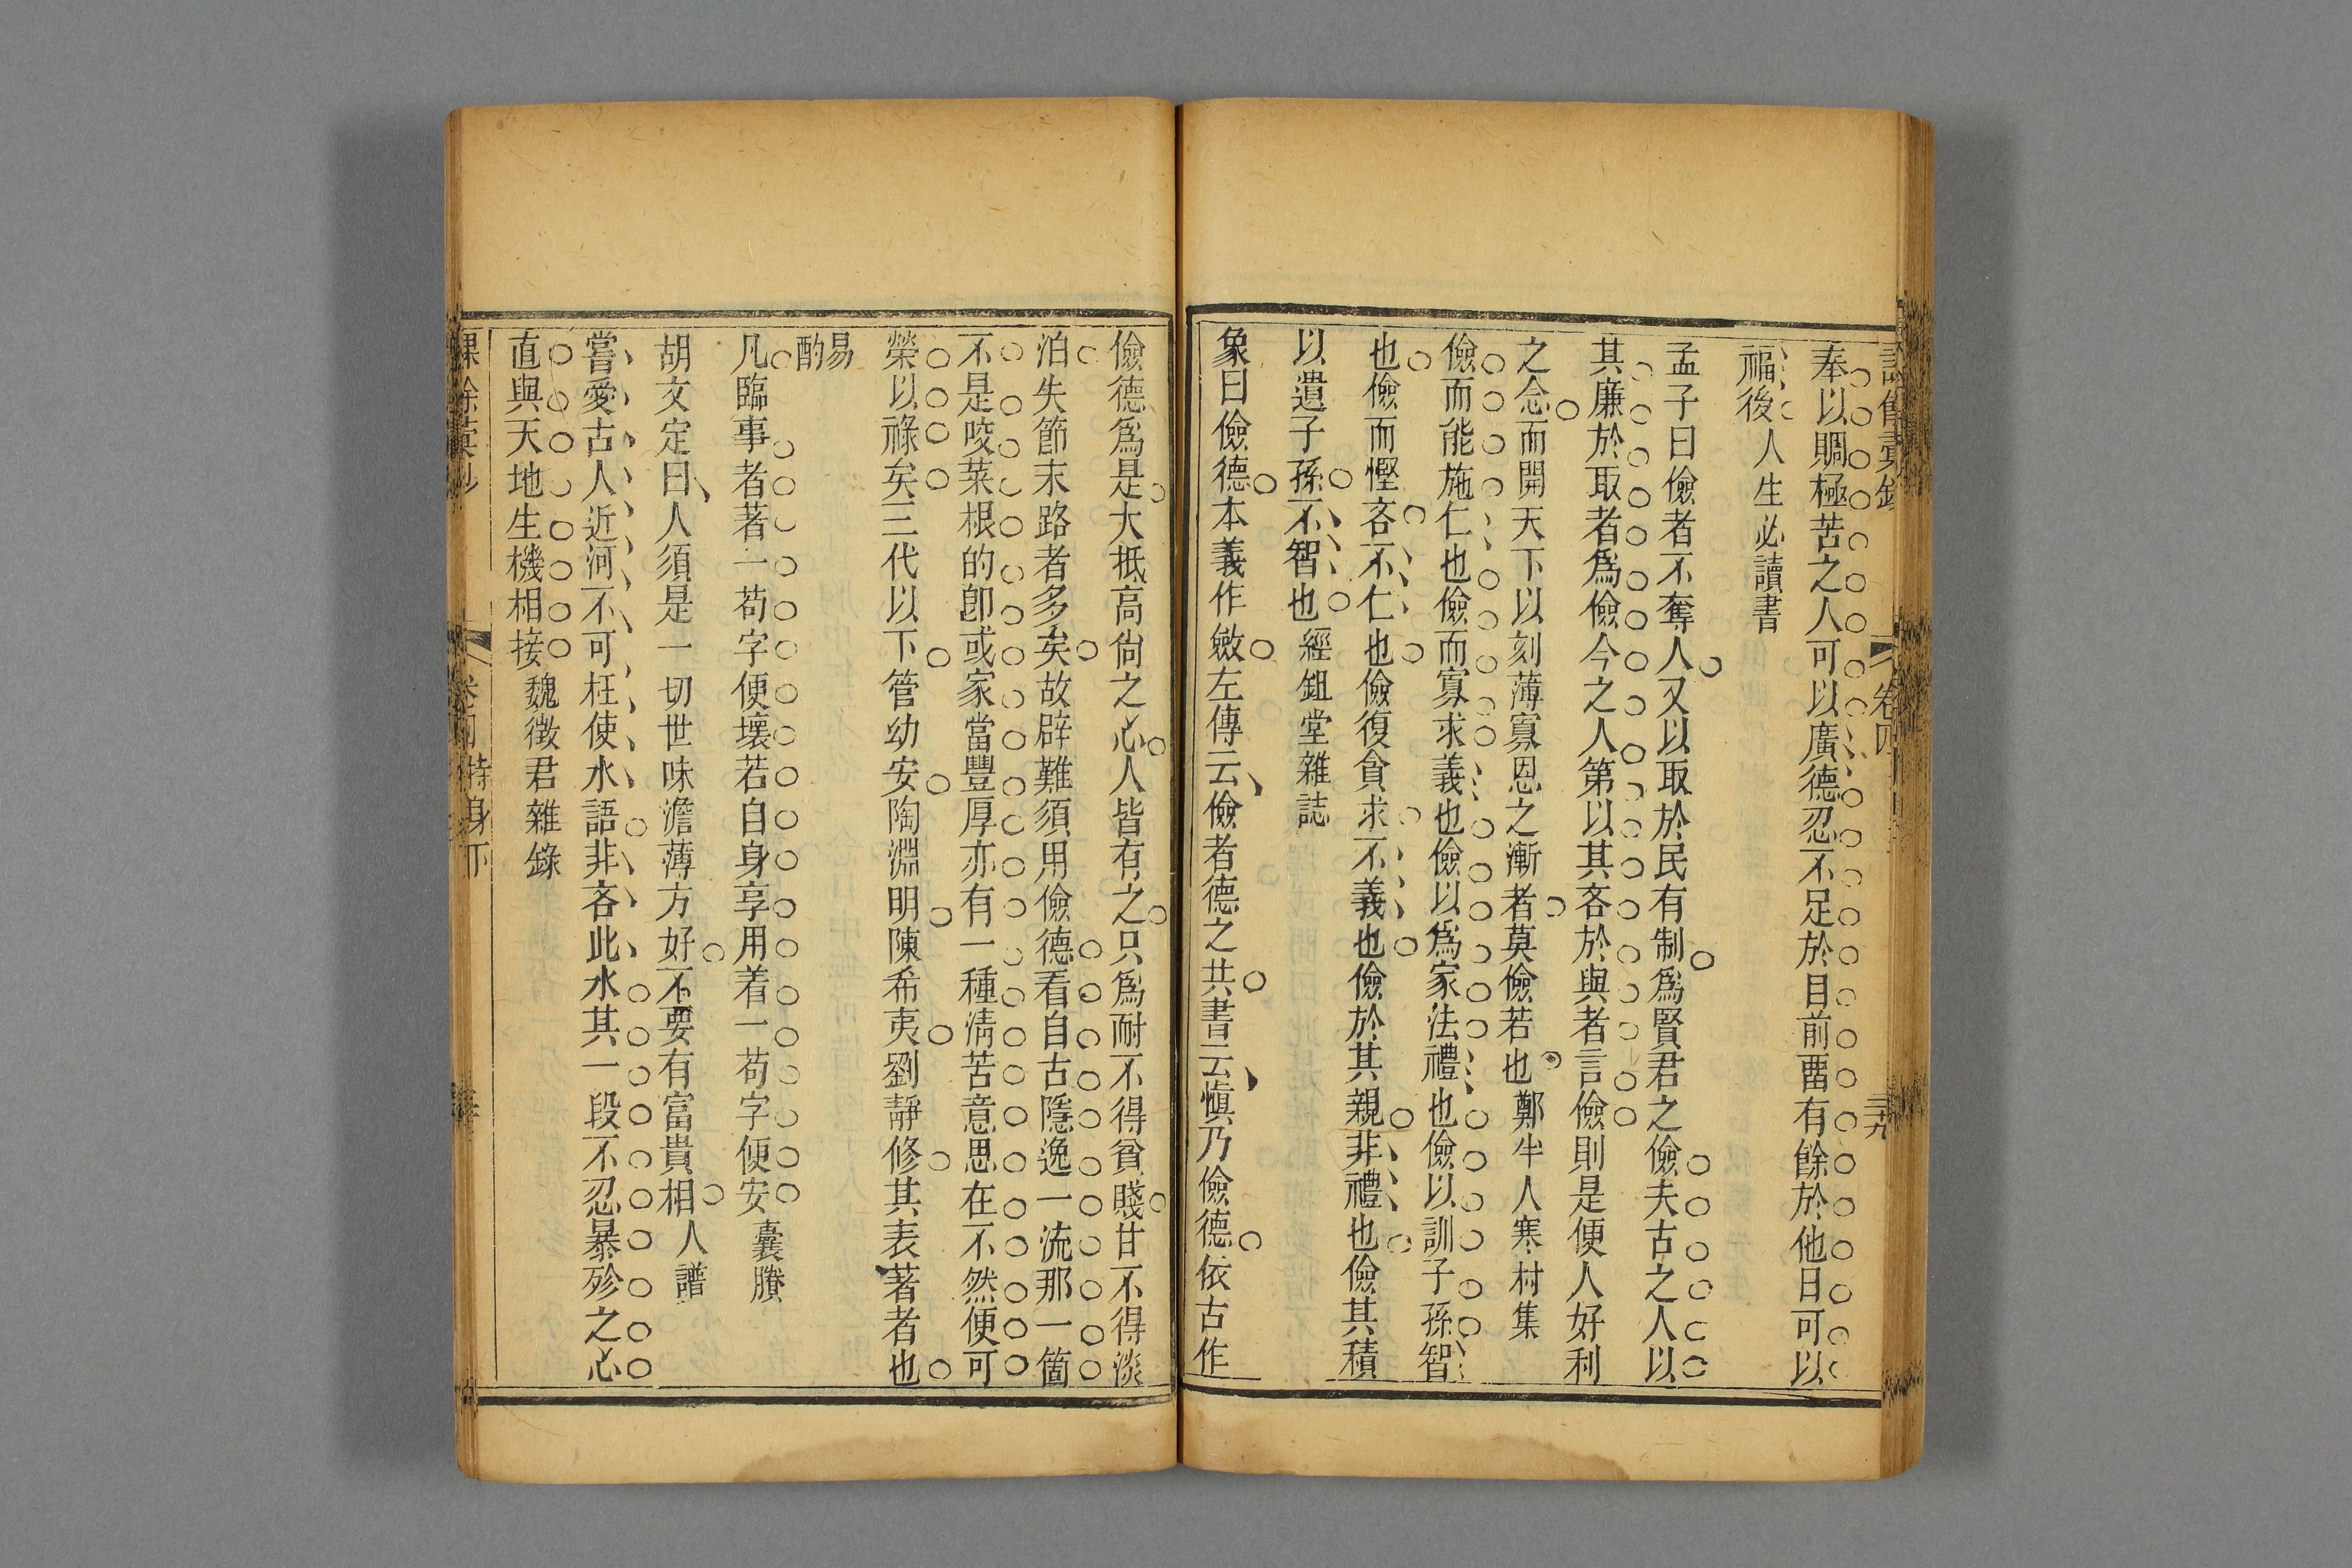 奉以賙極苦之人可以廣德忍不足於目前畱有餘於他日可以
福後人生必讀書
孟子曰儉者不奪人又以取於民有制爲賢君之儉夫古之人以
其廉於取者爲儉今之人第以其吝於與者言儉則是便人好利
之念而開天下以刻薄寡恩之漸者莫儉若也鄭半人寒村集
儉而能施仁也儉而寡求義也儉以爲家法禮也儉以訓子孫智
也儉而慳吝不仁也儉復貪求不義也儉於其親非禮也儉其積
以遺子孫不智也經鉏堂雜誌
象曰儉德本義作斂左傳云儉者德之共書云愼乃儉德依古作
儉德爲是大抵高尙之心人皆有之只爲耐不得貧賤甘不得淡
泊失節末路者多矣故辟難須用儉德看自古隱逸一流那一箇
不是咬菜根的卽或家當豐厚亦有一種淸苦意思在不然便可
榮以祿矣三代以下管幼安陶淵明陳希夷劉靜修其表著者也
易酌
凡臨事者著一苟字便壞若自身享用着一苟字便安囊賸
胡文定曰人須是一切世味澹薄方好不要有富貴相人譜
嘗愛古人近河不可枉使水語非吝此水其一段不忍暴殄之心
直與天地生機相接魏徵君雜錄
卷四 持身下